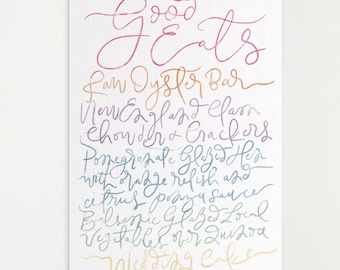 Good
Eats
Raw Oyster Bar
New England Clam
Chowder & Crackers
Pomegranate Glazed Hen
with orange relish and
citrus ponzu sauce
Balsamic Glazed Local
Vegetables over Quinoa
Wedding Cake